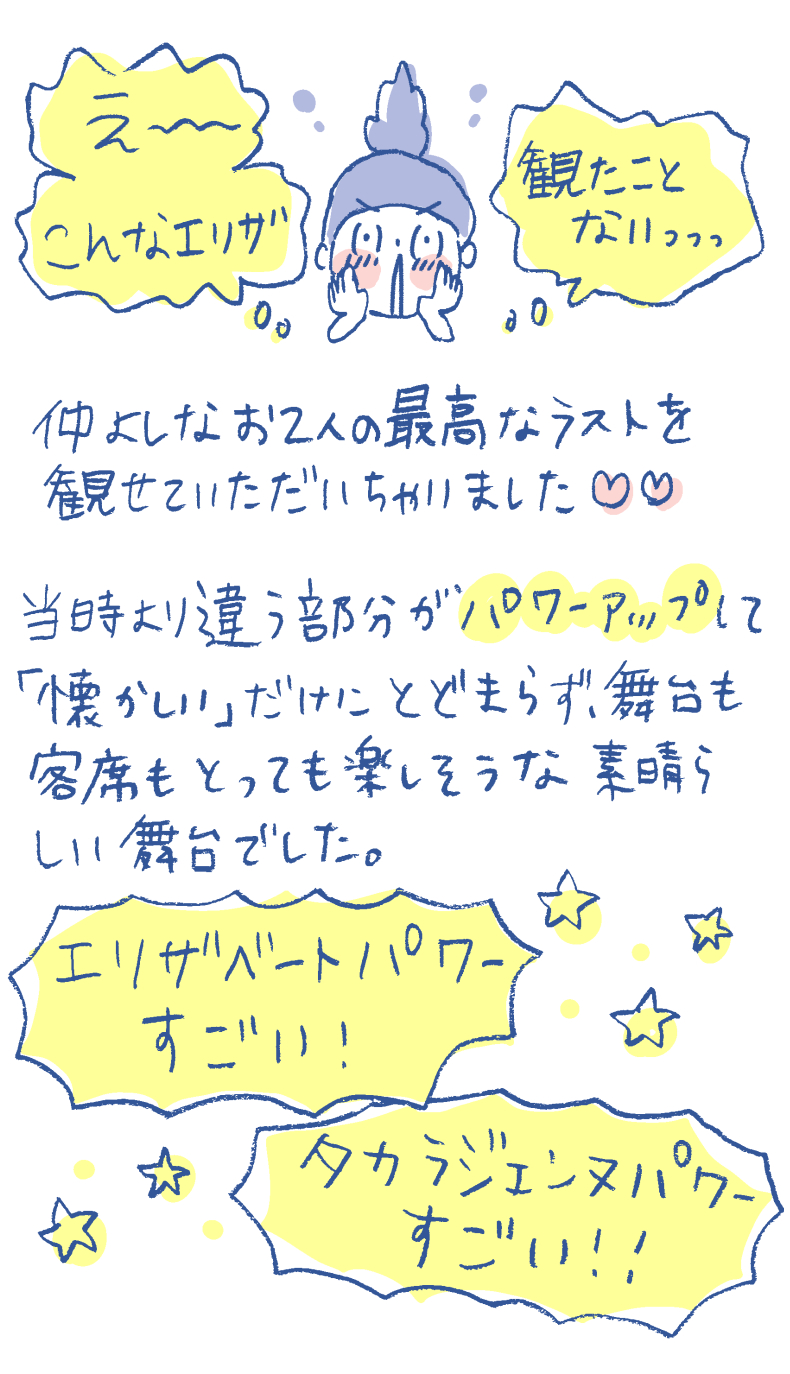 え〜〜
こんなエリザ
観たこと
ないっっっ
仲よしなお2人の最高なラストを
観せていただいちゃいました♡♡
当時より違う部分がパワーアップして
「懐かしい」だけにとどまらず、舞台も
客席もとっても楽しそうな素晴ら
しい舞台でした。
エリザベートパワー
すごい!
タカラジェンヌパワー
すごい!!